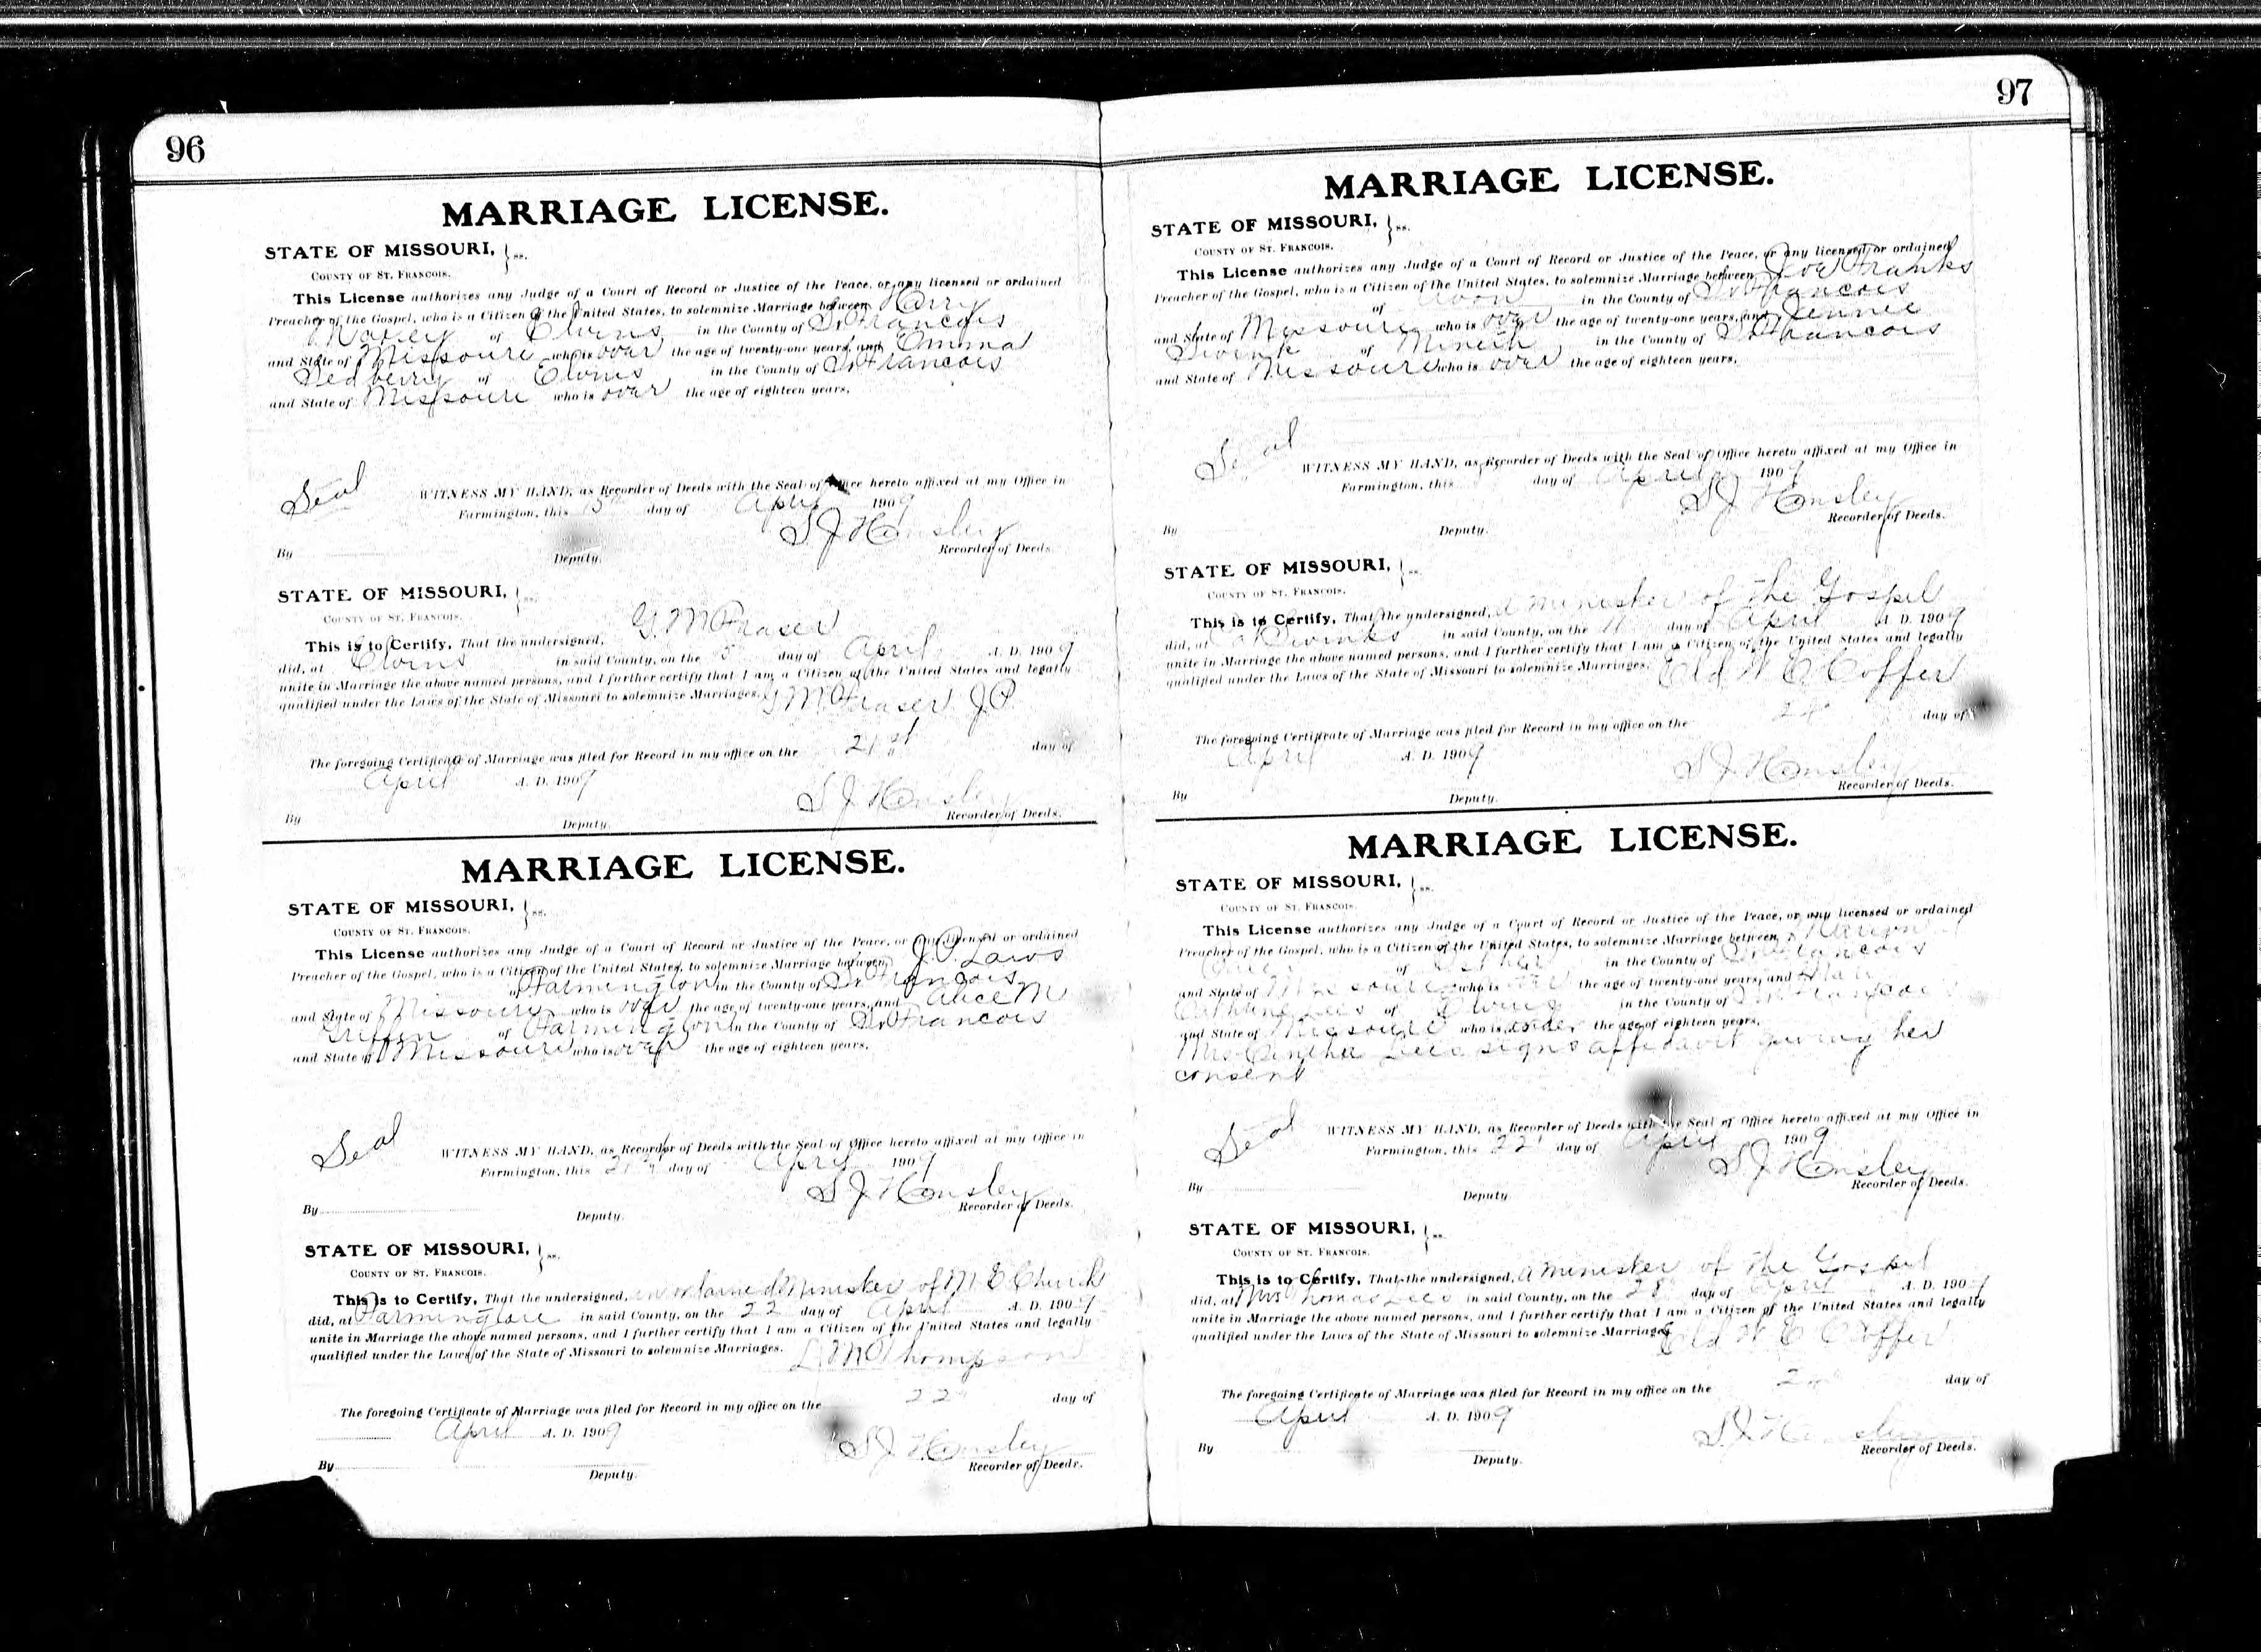 96
MARRIAGE LICENSE.
STATE OF MISSOURI, } ss.
COUNTY OF ST. FRANCOIS.
This License authorizes any Judge of a Court of Record or Justice of the Peace, or any licensed or ordained
Preacher of the Gospel, who is a Citizen of the United States, to solemnize Marriage between Harry
of Elvins in the County of St Francois
and State of Missouri who is over the age of twenty-one years, and Emma
Sedberry of Elvins in the County of St Francois
and State of Missouri who is over the age of eighteen years.
Seal WITNESS MY HAND, as Recorder of Deeds with the Seal of Office hereto affixed at my Office in
Farmington, this day of April 1909
S J Hensley
By Deputy. Recorder of Deeds.
STATE OF MISSOURI, } ss.
COUNTY OF ST. FRANCOIS.
This is to Certify, That the undersigned, G. M Fraser
did, at Elvins in said County, on the day of April A. D. 1909
unite in Marriage the above named persons, and I further certify that I am a Citizen of the United States and legally
qualified under the Laws of the State of Missouri to solemnize Marriages. G M Fraser J. P.
The foregoing Certificate of Marriage was filed for Record in my office on the 21st day of
April A. D. 1909
S J Hensley
By Deputy. Recorder of Deeds.
MARRIAGE LICENSE.
STATE OF MISSOURI, } ss.
COUNTY OF ST. FRANCOIS.
This License authorizes any Judge of a Court of Record or Justice of the Peace, or any licensed or ordained
Preacher of the Gospel, who is a Citizen of the United States, to solemnize Marriage between J. P. Laws
of Farmington in the County of St Francois
and State of Missouri who is over the age of twenty-one years, and Alice M
Griffin of Farmington in the County of St Francois
and State of Missouri who is over the age of eighteen years.
Seal WITNESS MY HAND, as Recorder of Deeds with the Seal of Office hereto affixed at my Office in
Farmington, this 21st day of April 1909
S J Hensley
By Deputy. Recorder of Deeds.
STATE OF MISSOURI, } ss.
COUNTY OF ST. FRANCOIS.
This is to Certify, That the undersigned, an ordained Minister of M E Church
did, at Farmington in said County, on the 22 day of April A. D. 1909
unite in Marriage the above named persons, and I further certify that I am a Citizen of the United States and legally
qualified under the Laws of the State of Missouri to solemnize Marriages. Thompson
The foregoing Certificate of Marriage was filed for Record in my office on the 22 day of
April A. D. 1909
S J Hensley
By Deputy. Recorder of Deeds.
97
MARRIAGE LICENSE.
STATE OF MISSOURI, } ss.
COUNTY OF ST. FRANCOIS.
This License authorizes any Judge of a Court of Record or Justice of the Peace, or any licensed or ordained
Preacher of the Gospel, who is a Citizen of the United States, to solemnize Marriage between Franks
of in the County of St Francois
and State of Missouri who is over the age of twenty-one years, and Jennie
Swink of in the County of St Francois
and State of Missouri who is over the age of eighteen years.
Seal WITNESS MY HAND, as Recorder of Deeds with the Seal of Office hereto affixed at my Office in
Farmington, this day of April 1909
S J Hensley
By Deputy. Recorder of Deeds.
STATE OF MISSOURI, } ss.
COUNTY OF ST. FRANCOIS.
This is to Certify, That the undersigned, a minister of the Gospel
did, at Swinks in said County, on the 11 day of April A. D. 1909
unite in Marriage the above named persons, and I further certify that I am a Citizen of the United States and legally
qualified under the Laws of the State of Missouri to solemnize Marriages. Eld W E Coffer
The foregoing Certificate of Marriage was filed for Record in my office on the day of
April A. D. 1909
S J Hensley
By Deputy. Recorder of Deeds.
MARRIAGE LICENSE.
STATE OF MISSOURI, } ss.
COUNTY OF ST. FRANCOIS.
This License authorizes any Judge of a Court of Record or Justice of the Peace, or any licensed or ordained
Preacher of the Gospel, who is a Citizen of the United States, to solemnize Marriage between
of in the County of St Francois
and State of Missouri who is the age of twenty-one years, and
of in the County of St Francois
and State of Missouri who is under the age of eighteen years.
Mrs signs affidavit giving her
consent
Seal WITNESS MY HAND, as Recorder of Deeds with the Seal of Office hereto affixed at my Office in
Farmington, this 22 day of April 1909
S J Hensley
By Deputy. Recorder of Deeds.
STATE OF MISSOURI, } ss.
COUNTY OF ST. FRANCOIS.
This is to Certify, That the undersigned, a minister of the Gospel
did, at Mrs Thomas in said County, on the day of April A. D. 1909
unite in Marriage the above named persons, and I further certify that I am a Citizen of the United States and legally
qualified under the Laws of the State of Missouri to solemnize Marriages. Eld W E Coffer
The foregoing Certificate of Marriage was filed for Record in my office on the day of
April A. D. 1909
S J Hensley
By Deputy. Recorder of Deeds.